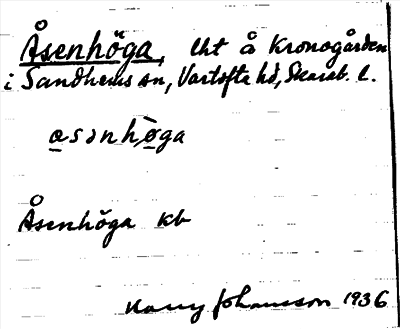 Åsenhöga, lht å Kronogården
i Sandhems sn, Vartofta hd, Skarab. l.
o̲sənhø̲ga
Åsenhöga kb
Harry Johansson 1936